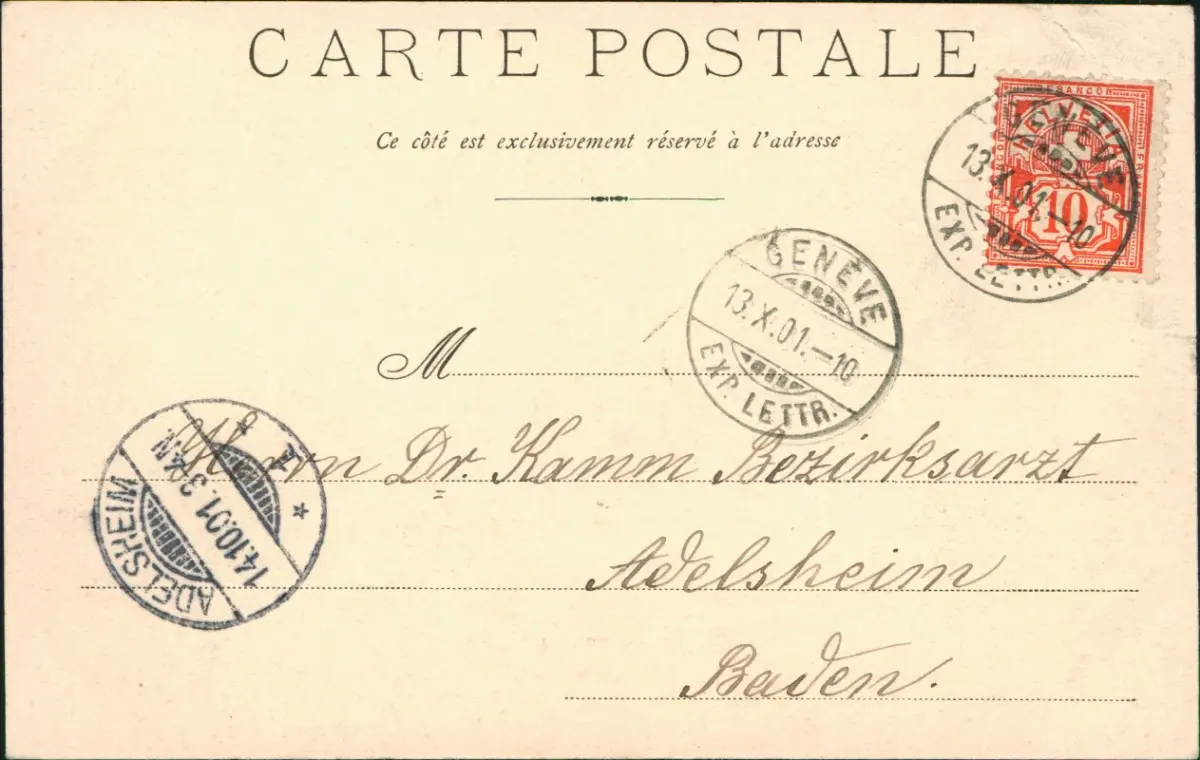 CARTE POSTALE
Ce côté est exclusivement réservé à l'adresse
FRANCO
HELVETIA
10
GENÈVE
13.X.01.–10
EXP. LETTR.
GENÈVE
13.X.01.–10
EXP. LETTR.
M
Herrn Dr. Kamm Bezirksarzt
Adelsheim
Baden.
ADELSHEIM
14.10.01. 3-4N